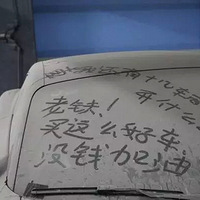 还有十几年
开什么
老铁！
买这么好车
没钱加油